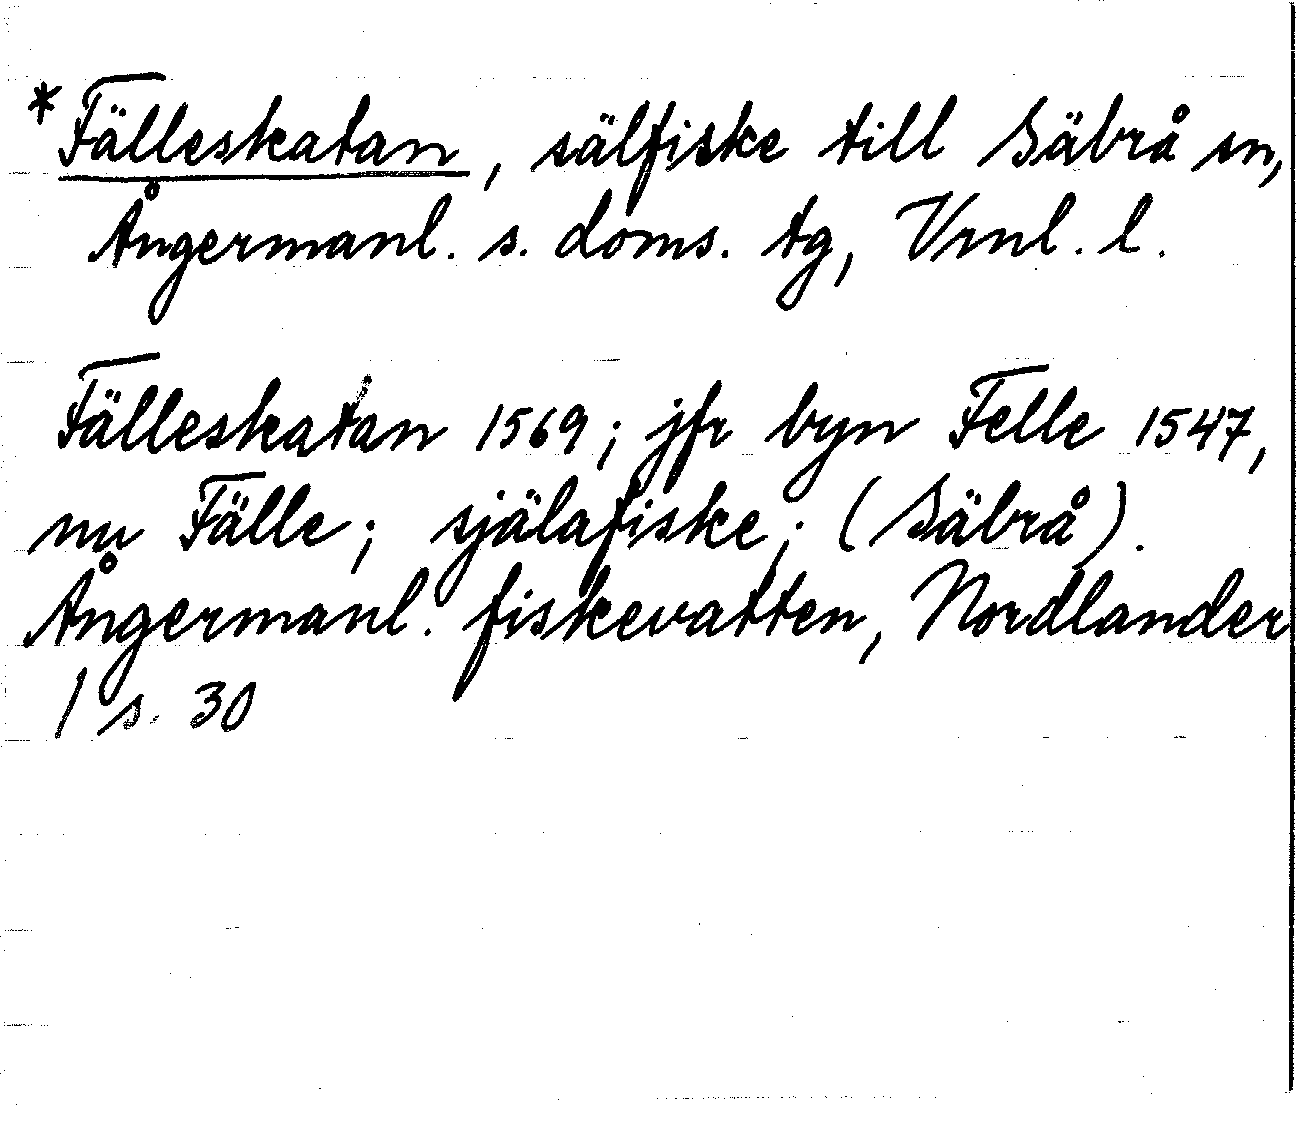 * Fälleskatan, sälfiske till Säbrå sn,
Ångermanl. s. doms. tg, Vrnl. l.
Fälleskatan 1569; jfr byn Felle 1547,
nu Fälle; själafiske; (Säbrå).
Ångermanl. fiskevatten, Nordlander
1 s. 30